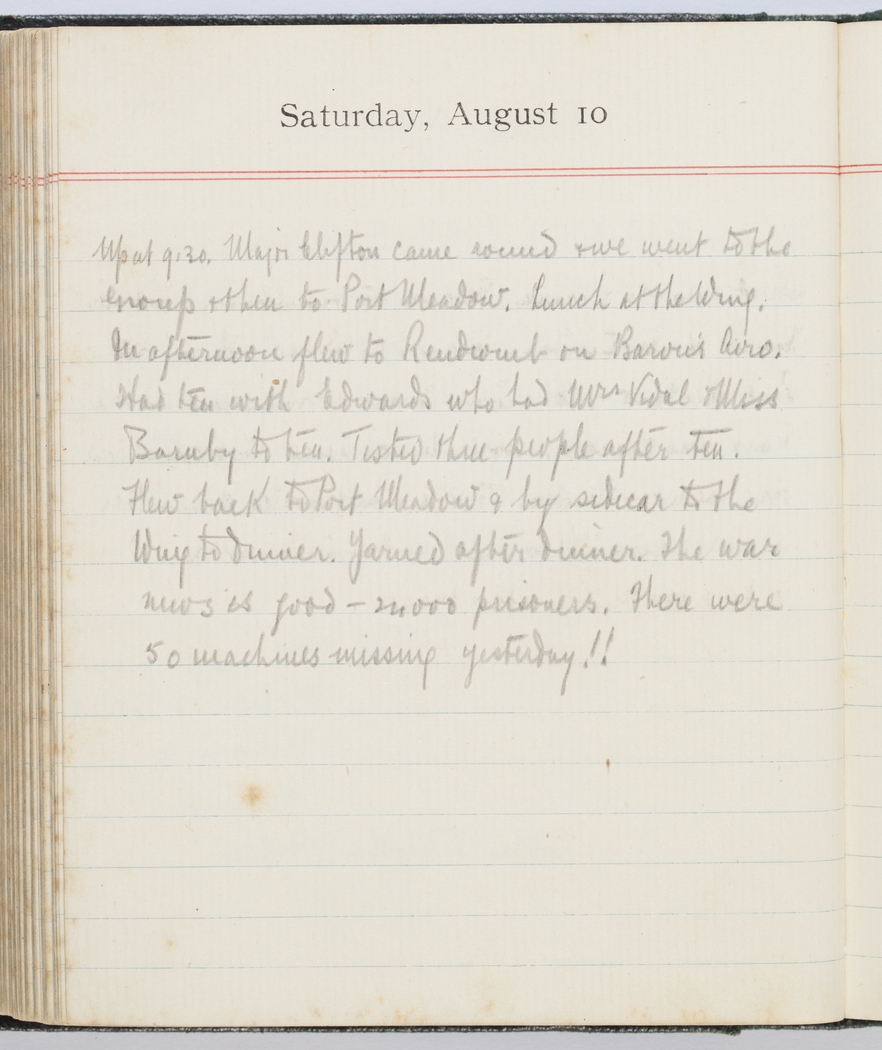 Saturday, August 10
Up at 9.30. Major Clifton came round & we went to the
group & then to Port Meadow. Lunch at the Wing.
In afternoon flew to Rendcomb on Baron's Avro.
Had tea with Edwards who had Mrs Vidal & Miss
Barnby to tea. Tested three people after tea.
Flew back to Port Meadow & by sidecar to the
Wing to dinner. Yarned after dinner. The war
news is good – 24000 prisoners. There were
50 machines missing yesterday!!